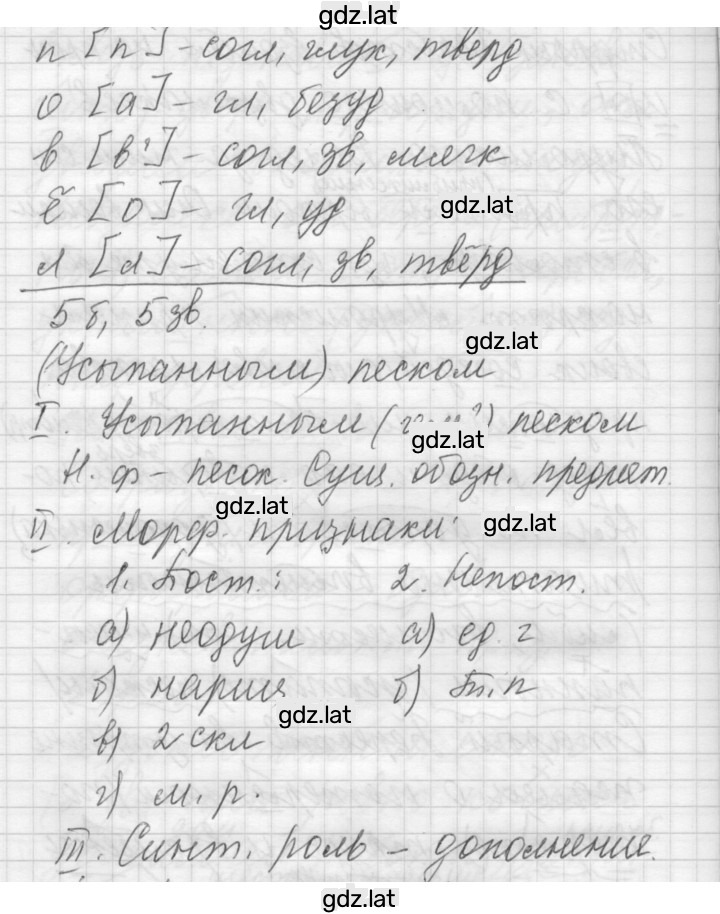 gdz.lat
п [п] - согл, глух, твёрд
о [а] - гл, безуд
в [в'] - согл, зв, мягк
ё [о] - гл, уд
gdz.lat
л [л] - согл, зв, твёрд
5 б, 5 зв.
gdz.lat
(Усыпанным) песком
I. Усыпанным ( ) песком
gdz.lat
Н. ф - песок. Сущ. обозн. предмет.
gdz.lat
II. Морф. признаки:
gdz.lat
1. Пост.: 2. Непост.
а) неодуш а) ед. г
б) нариц б) Т. п
gdz.lat
в) 2 скл
г) м. р.
III. Синт. роль - дополнение.
gdz.lat